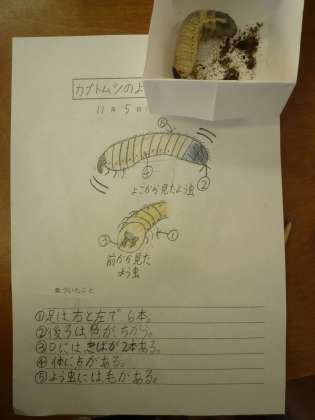 カブトムシのよ
11月5日
⑤
④
よこから見たよう虫
②
③
①
前から見た
よう虫
気づいたこと
①足は右と左で6本。
②後ろは色がちがう。
③口にはきばが2本ある。
④体に点がある。
⑤よう虫には毛がある。